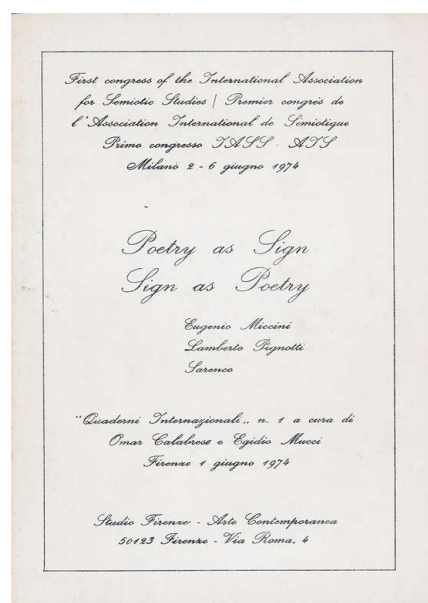 First congress of the International Association
for Semiotic Studies | Premier congrès de
l'Association International de Sémiotique
Primo congresso IASS - AIS
Milano 2 - 6 giugno 1974
Poetry as Sign
Sign as Poetry
Eugenio Miccini
Lamberto Pignotti
Sarenco
"Quaderni Internazionali„ n. 1 a cura di
Omar Calabrese e Egidio Mucci
Firenze 1 giugno 1974
Studio Firenze - Arte Contemporanea
50123 Firenze - Via Roma, 4